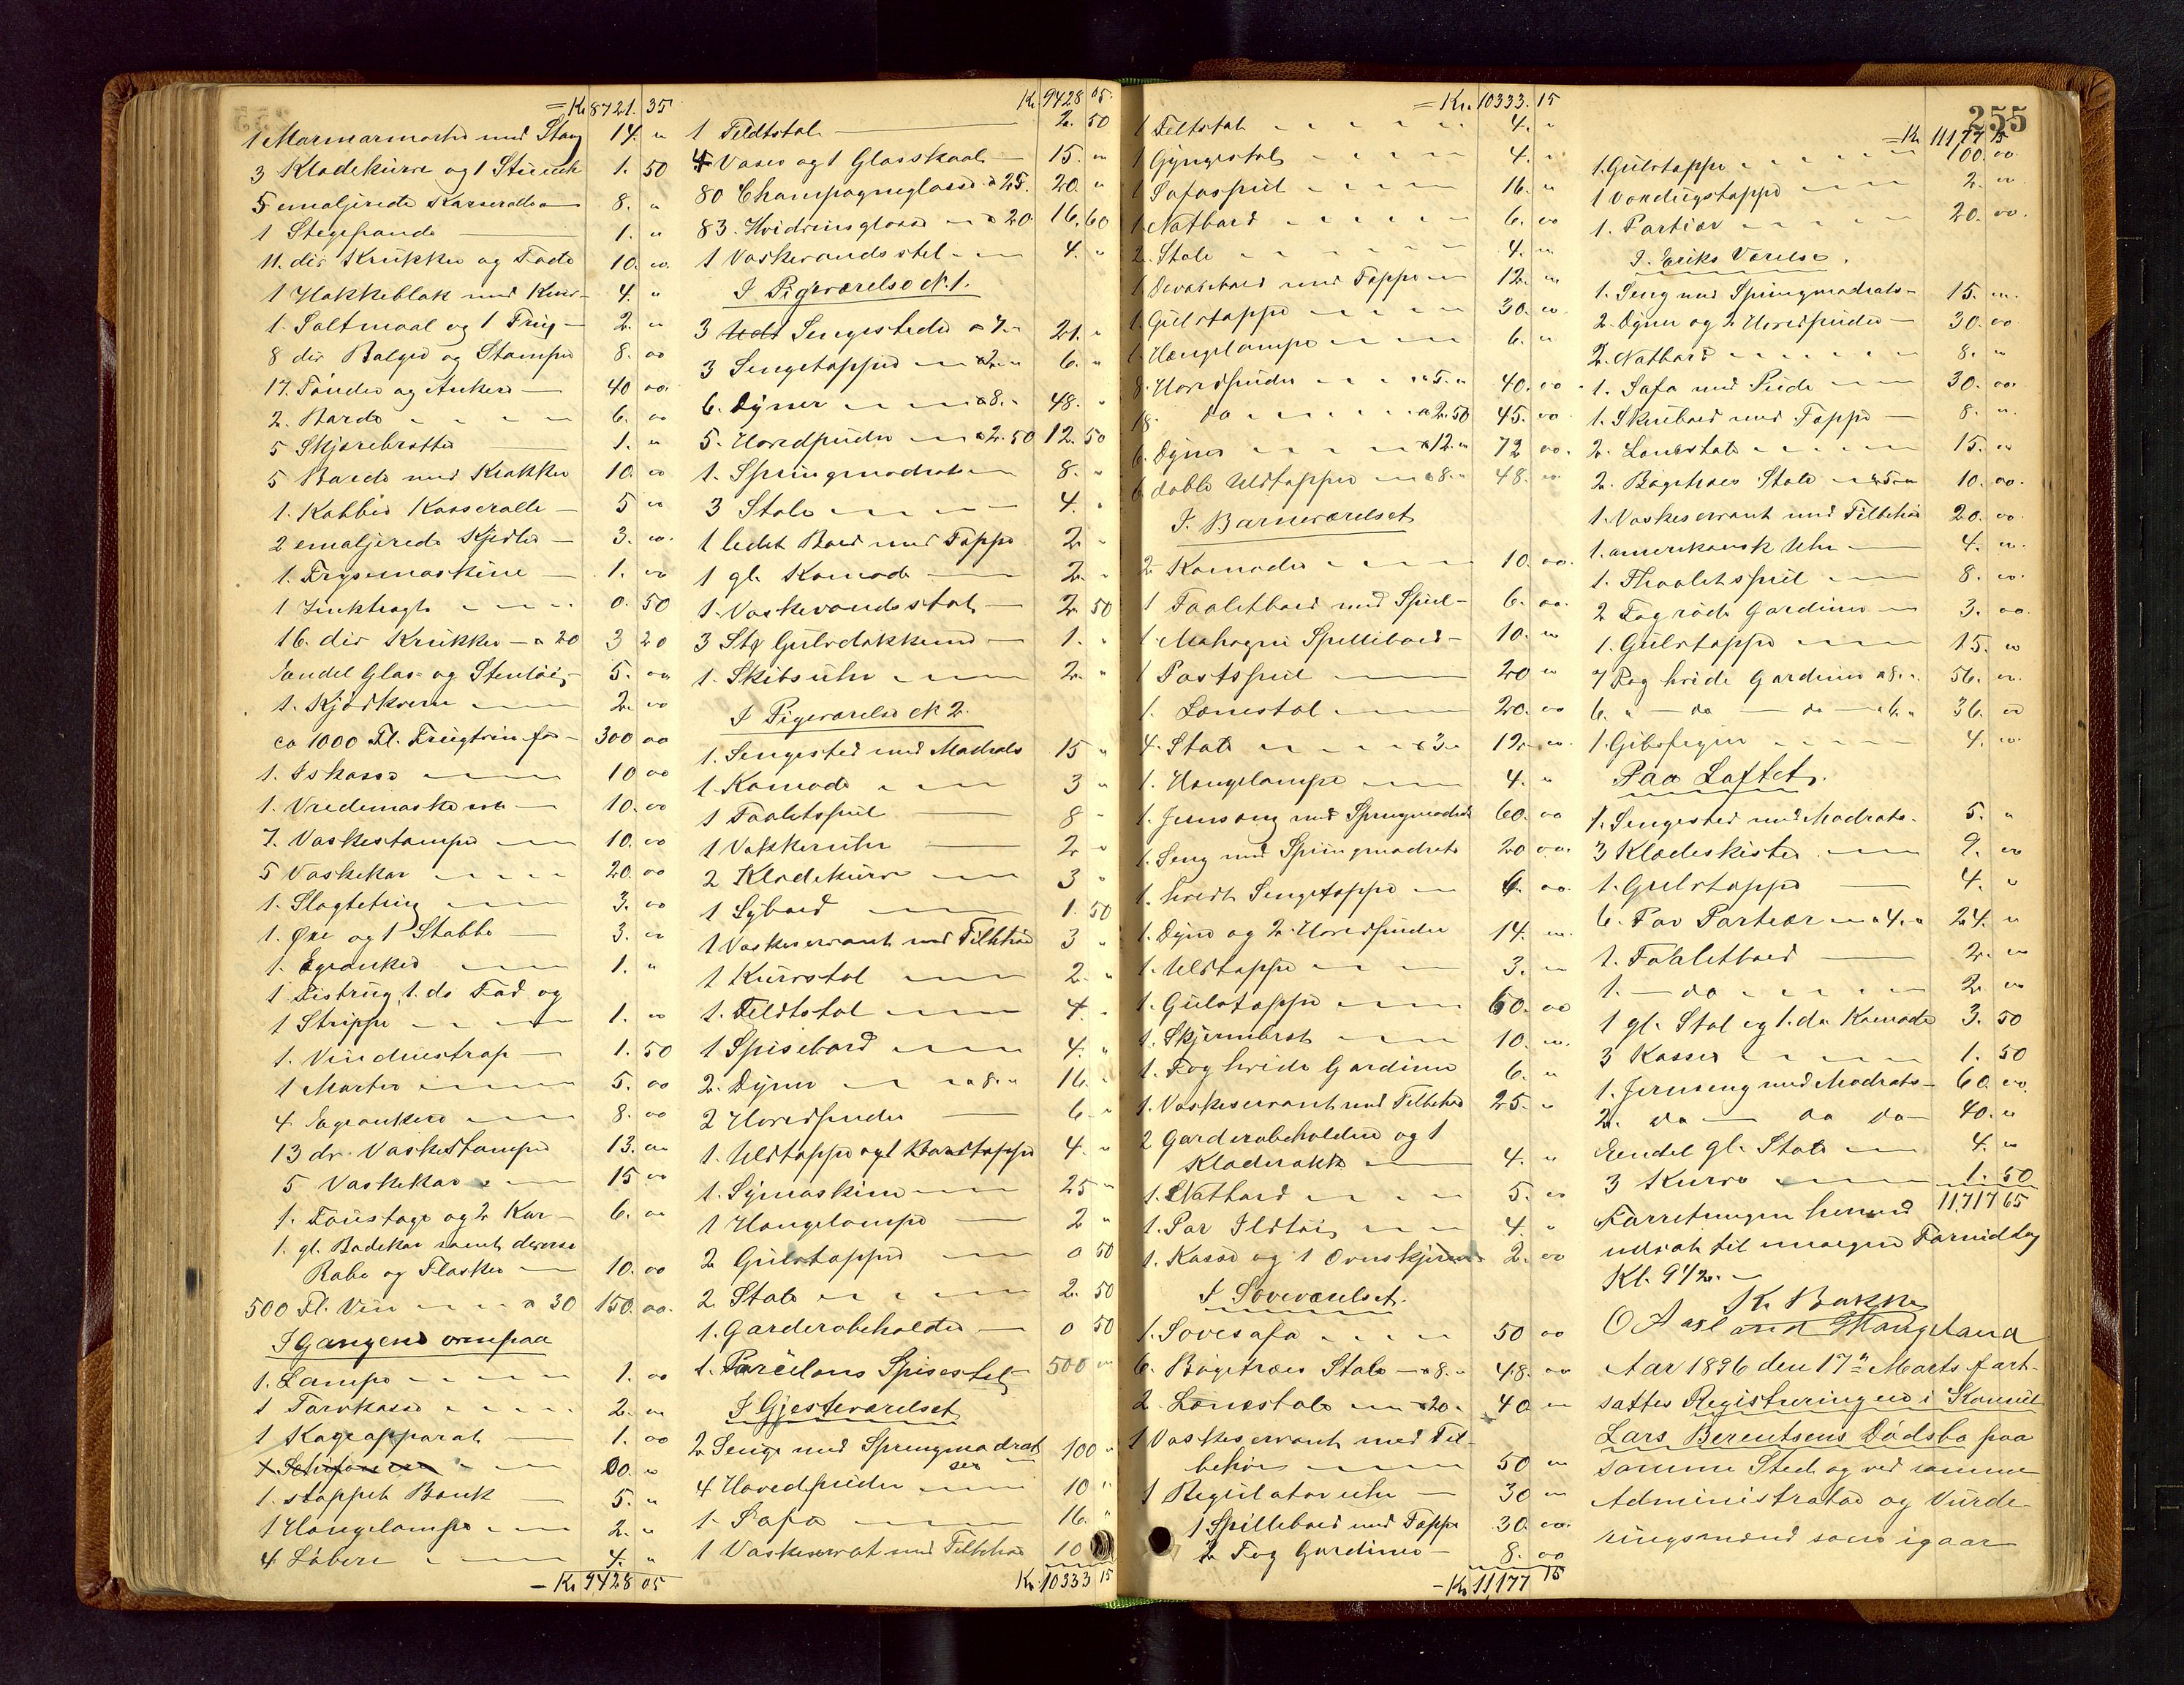 = Kr 8721. 35
1 Marmormorter med Stang 14. "
3 Klædekurve og 1 Strieurk 1. 50
5 emaljerede Kasseroller 8. "
1 Stegepande 1. "
11. div Krukker og Fade 10. oo.
1 Hakkeblok med Kniv 4. "
1. Saltmaal og 1 Trug 2. "
8 div Baljer og Stamper 8. oo
17. Tønder og Ankere 40 oo.
2. Borde 6. oo
5 Skjærebretter 1. "
5 Borde med Krakker 10. oo
1. Kobber Kasserolle 5 oo
2 emaljerede Kjedler 3. oo.
1. Frysemaskine 1. oo
1 Zinktragt 0. 50
16. div Krukker a 20 3 20
Endel Glas- og Stentøi 5. oo
1. Kjødkvern 2. oo
ca 1000 Fl. Frugtvin for 300 oo
1. Iskasse 10 oo
1. Vredemaskine 10. oo
7. Vaskestamper 10. oo
5 Vaskekar 20. oo
1. Slagtetrug 3. oo
1. Øxe og 1 Stabbe 3. oo
1. Egeanker 1. "
1 Distrug, 1. do Fad og
1 Strippe 1. oo
1. Vinduestrap 1. 50
1 Morter 5. oo
4 Egeankere 8. oo
13 div. Vaskestamper 13. oo
5 Vaskekar 15 oo
1. Foustage og 2 Kar 6. oo
1. gl. Badekar samt diverse
Rabe og Flasker 10. oo
500 Fl. Vin a 30 150. oo.
I Gangene ovenpaa
1. Lampe 1. oo
1 Torvkasse 2. oo
1 Kogeapparat 1. oo
1 Schifoniere 00. "
1. stoppet Bænk 5. "
1 Hængelampe 2. "
4 Løbere 4. "
- Kr 9428 05
Kr. 9428 05.
1 Feldtstol 2. 50
4 Vaser og 1 Glasskaal 15. "
80 Champagneglasse a 25. 20. "
83. Hvidvinsglasse a 20 16. 60
1 Vaskevandsstel 4. "
I Pigeværelse N. 1.
3 Uldt Sengesteder a 7. 21. "
3 Sengetæpper a 2. " 6. "
6. Dyner a 8. " 48. "
5. Hovedpuder a 2. 50 12. 50
1. Springmadrats 8. "
3 Stole 4. "
1 ledet Bord med Tæppe 2. "
1 gl. Komode 2. "
1. Vaskevandsstol 2. 50
3 Stk Gulvdækkener 1. "
1. Skibsuhr 2. "
I Pigeværelse N 2.
1. Sengested med Madrats 15 "
1. Komode 3 "
1 Toaletspeil 8 "
1 Vækkeruhr 2. "
2 Klædekurve 3 "
1 Sybord 1. 50
1 Vaskeservant med Tilbehør 3 "
1 Kurvstol 2. "
1. Feldtstol 4. "
1 Spisebord 4. "
2. Dyner a 8. " 16. "
2 Hovedpuder 6. "
1. Uldtæppe og 1 Bordtæppe 4. "
1. Symaskine 25 "
1 Hængelampe 2 "
2 Gulvtæpper 0 50
2. Stole 2. 50
1. Garderobeholder 0 50
1. Porcelæns Spisestel 500 oo
I Gjesteværelset
2 Senge med Springmadrat
ser 100 "
4 Hovedpuder 10 "
1. Sofa 16. "
1 Vaskeservant med Tilbehør 10
Kr. 10333 15
= Kr. 10333. 15
1 Feltstol 4. "
1 Gyngestol 4. "
1 Sofaspeil 16. "
1. Natbord 6. oo
2. Stole 4. "
1 Divanbord med Tæppe 12. "
1. Gulvtæppe 30. oo
1. Hængelampe 6. "
8. Hovedpuder a 5. " 40. oo
18. do a 2. 50 45. oo
6. Dyner a 12. " 72 oo.
6 doble Uldtæpper a 8. " 48. oo
I. Barneværelset
2 Komoder 10. oo.
1 Toaletbord med Speil 6. oo.
1 Mahogni Spillebord 10. "
1 Postspeil 20 "
1. Lænestol 20. oo
4. Stole a 3. " 12. oo.
1. Hængelampe 4. "
1. Jernseng med Springmadrats 60. oo
1. Seng med Springmadrats 20 oo.
1. hvidt Sengetæppe 6. oo.
1. Dyne og 2. Hovedpuder 14. "
1. Uldtæppe 3. "
1. Gulvtæppe 60. oo
1. Skjermbræt 10. "
1. Fag hvide Gardiner 6. "
1. Vaskeservant med Tilbehør 25. "
2 Garderobeholdere og 1
Klæderække 4. "
1. Natbord 5. oo
1. Par Ildtøi 4. "
1. Kasse og 1 Ovnskjerm 2. oo
I Soveværelset.
1. Sovesofa 50 oo
6. Bøgetræes Stole a 8. " 48. oo
2. Lænestole a 20. " 40 "
1 Vaskeservant med Til-
behør 50 "
1 Regulatoruhr 30 "
1 Spillebord med Tæppe 30. oo.
2 Fag Gardiner 8. oo
- Kr 11,177 15
255
= Kr 11177 15
1. Gulvtæppe 100. oo.
1 Voxdugstæppe 2. "
1. Portier 20. oo.
I. Eriks Værelse.
1. Seng med Springmadrats 15. "
2. Dyner og 2 Hovedpuder 30. oo
2. Natbord 8. "
1. Sofa med Pude 30. oo.
1. Skrivebord med Tæppe 8. "
2. Lænestole 15. oo
2. Bøgetræes Stole a 5. " 10. oo.
1. Vaskeservant med Tilbehør 20. oo.
1. amerikansk Uhr 4. "
1. Thoaletspeil 8. oo.
2 Fag røde Gardiner 3. oo.
1. Gulvtæppe 15. oo
7 Fag hvide Gardiner a 8. " 56. oo.
6. " do do a 6. " 36. oo
1. Gibsfigur 4. oo.
Paa Loftet.
1. Sengested med Madrats. 5. "
3 Klædeskister 9. oo
1. Gulvtæppe 4. "
6. Par Portier a 4. " 24. "
1. Toaletbord 2. "
1. do 2. oo
1 gl. Stol og 1. do Komode 3. 50
3 Kasser 1. 50
1. Jernseng med Madrats 60. oo.
2. do do do 40. "
Eendel gl. Stole 4. "
3 Kurve 1. 50
Forretningen hermed 11,717 65
udsat til imorgen Formiddag
Kl. 9 1/2.
K. Bakke
O A Axelsen Haugeland
Aar 1896 den 17n Marts fort-
sattes Registreringen i Konsul
Lars Berentsens Dødsbo paa
samme Sted og ved samme
Administrator og Vurde
ringsmænd som igaar